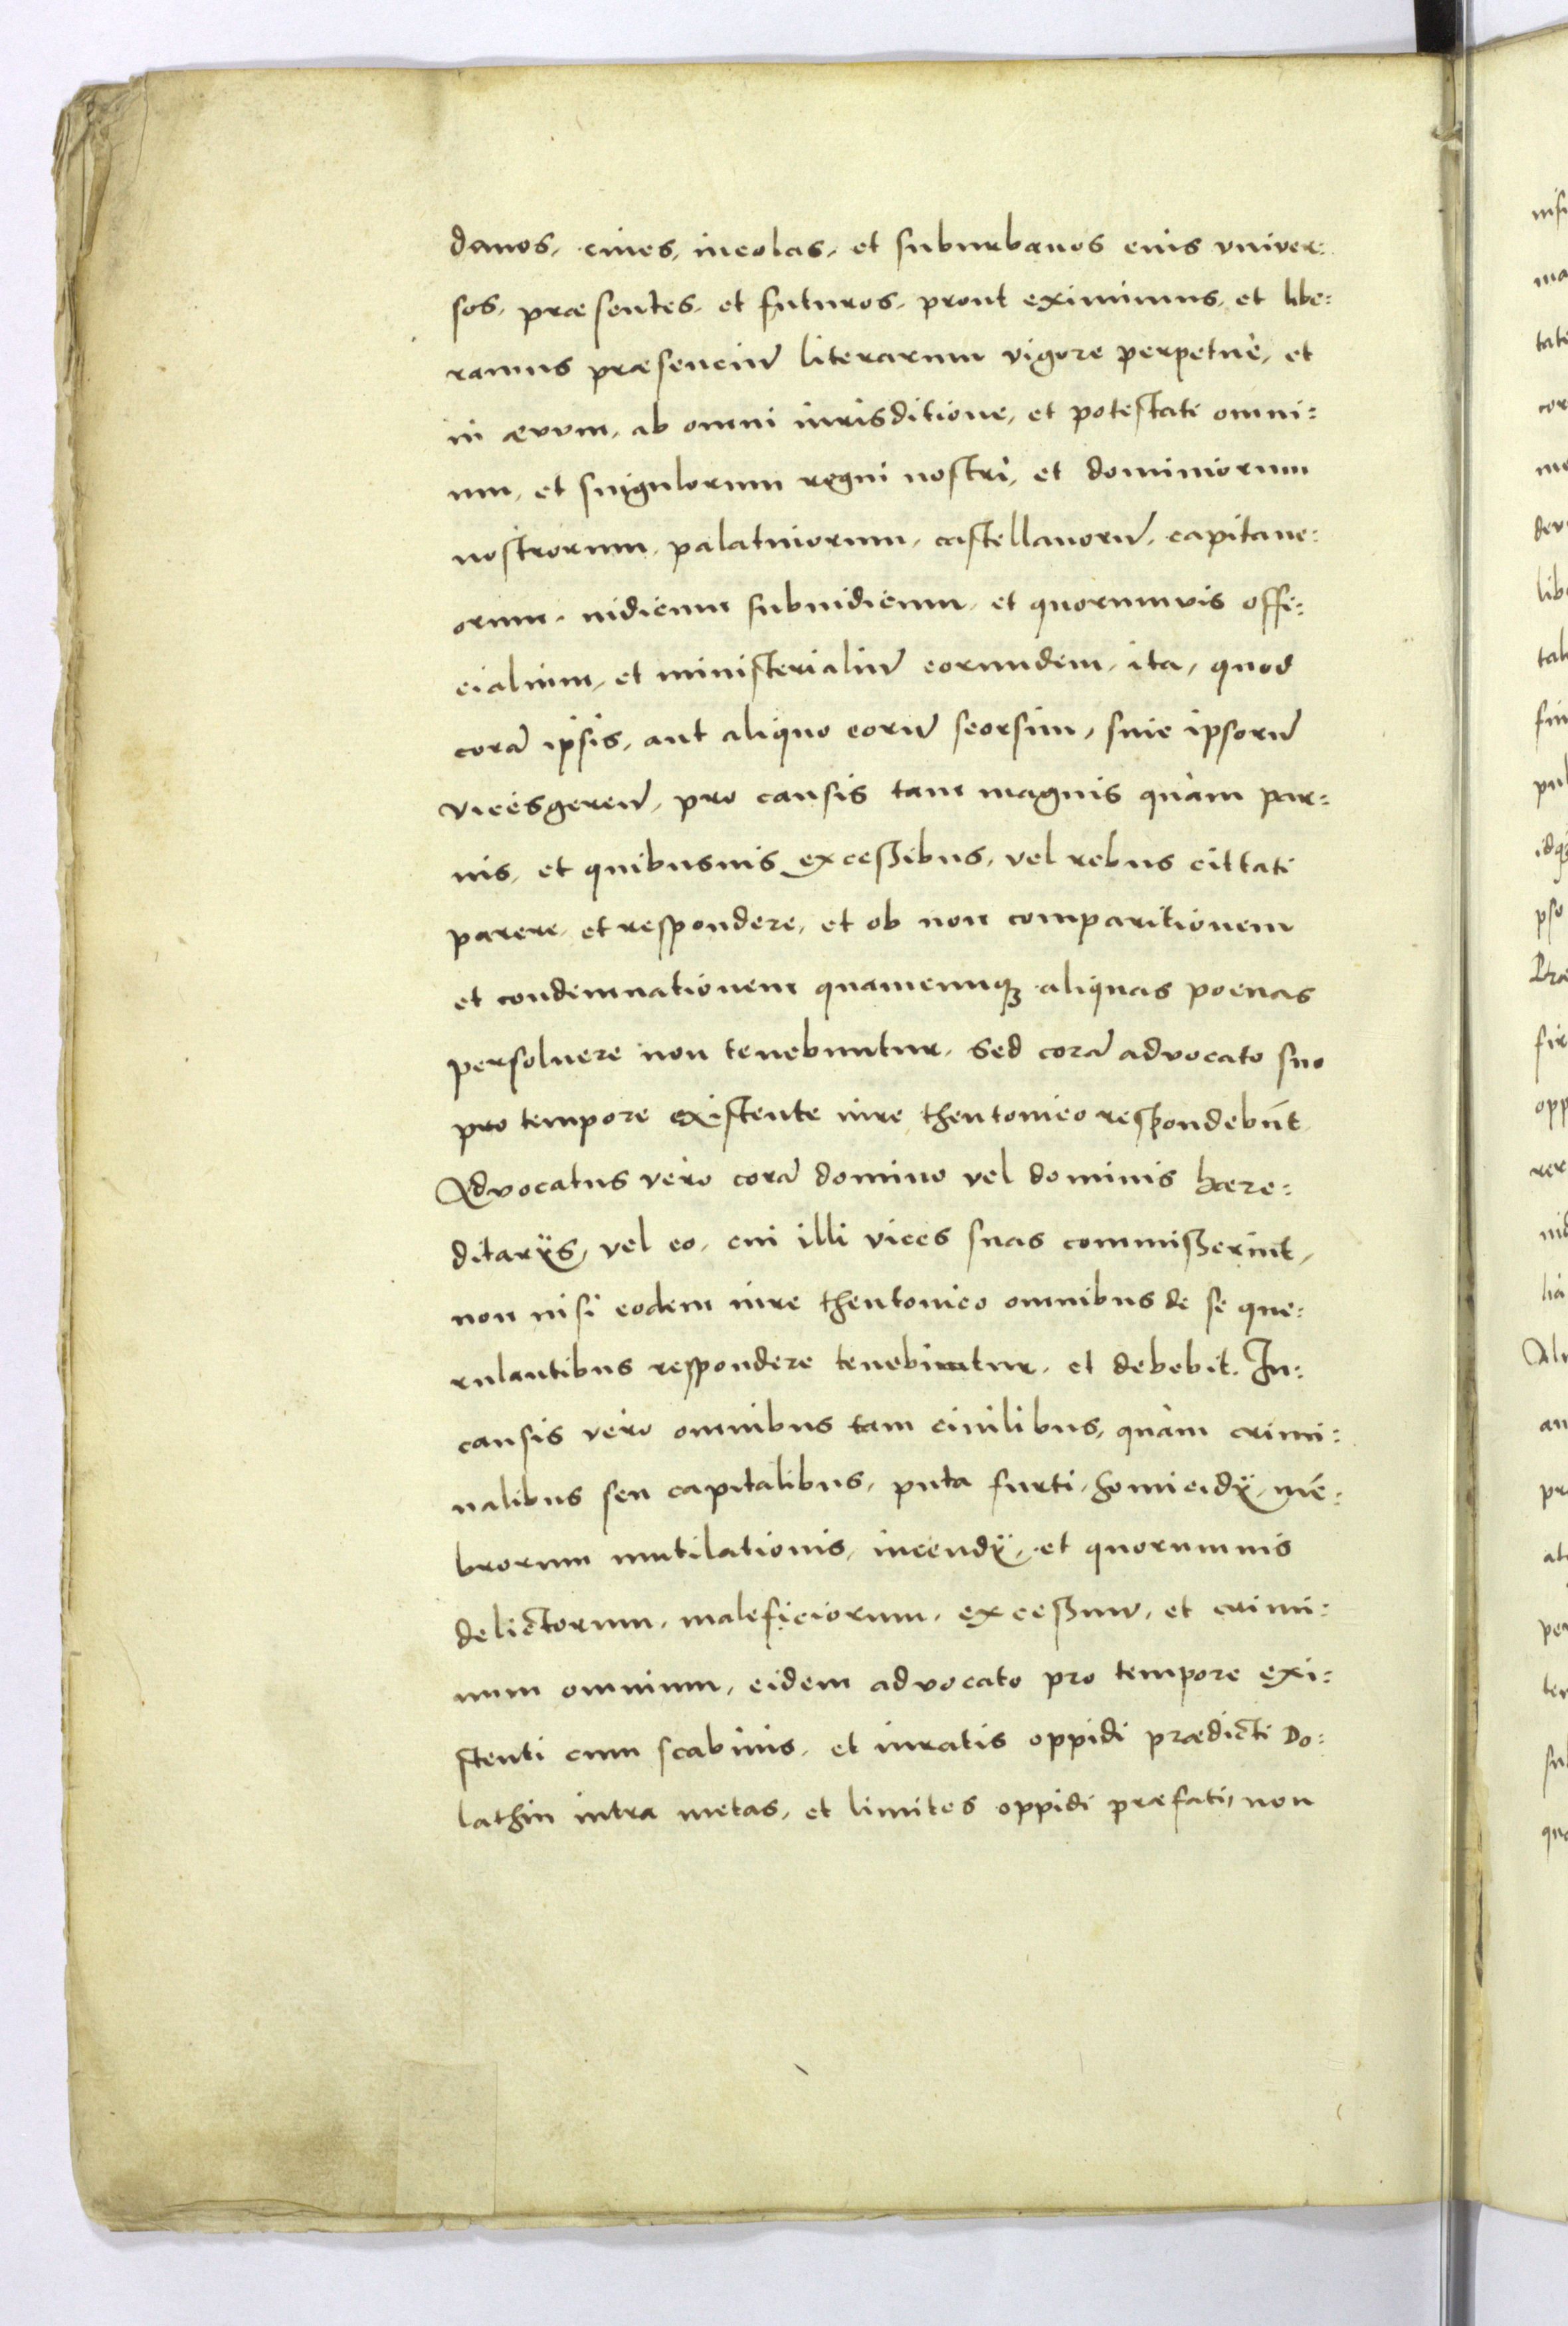 danos, ciues, incolas, et suburbanos eius vniuer:
sos, præsentes, et futuros, prout eximimus, et libe:
ramus præsenciũ literarum vigore perpetuè, et
in ævum, ab omni iurisditione, et potestati omni:
um, et singulorum regni nostri, et dominiorum
nostrorum, palatinorum, castellanorũ, capitane:
orum, iudicum subiudicum, et quorumuis offi:
cialium, et ministerialiũ eorundem, ita, quod
corã ipsis, aut aliquo eorũ seorsim, siue ipsorũ
vicesgerenũ, pro causis tam magnis quàm par:
uis, et quibusuis excessibus, vel rebus cittati
parere, et respondere, et ob non comparitionem
et condemnationem quamcunqꝫ aliquas poenas
persoluere non tenebuntur. Sed corã advocato suo
pro tempore existente iure theutonico respondebũt
Advocatus vero corã domino vel dominis hære:
ditarÿs, vel eo, cui illi vices suas commisserint,
non nisi eodem iure theutonico omnibus de se que:
rulantibus respondere tenebitur, et debebit. In:
causis vero omnibus tam ciuilibus, quàm crimi:
nalibus seu capitalibus, puta furti, homicidÿ, mẽ:
brorum mutilationis, incendÿ, et quorumuis
delictorum, maleficiorum, excessuũ, et crimi:
num omnium, eidem advocato pro tempore exi:
stenti cum scabinis, et iuratis oppidi prædicti Do:
lathin intra metas, et limites oppidi præfati, non